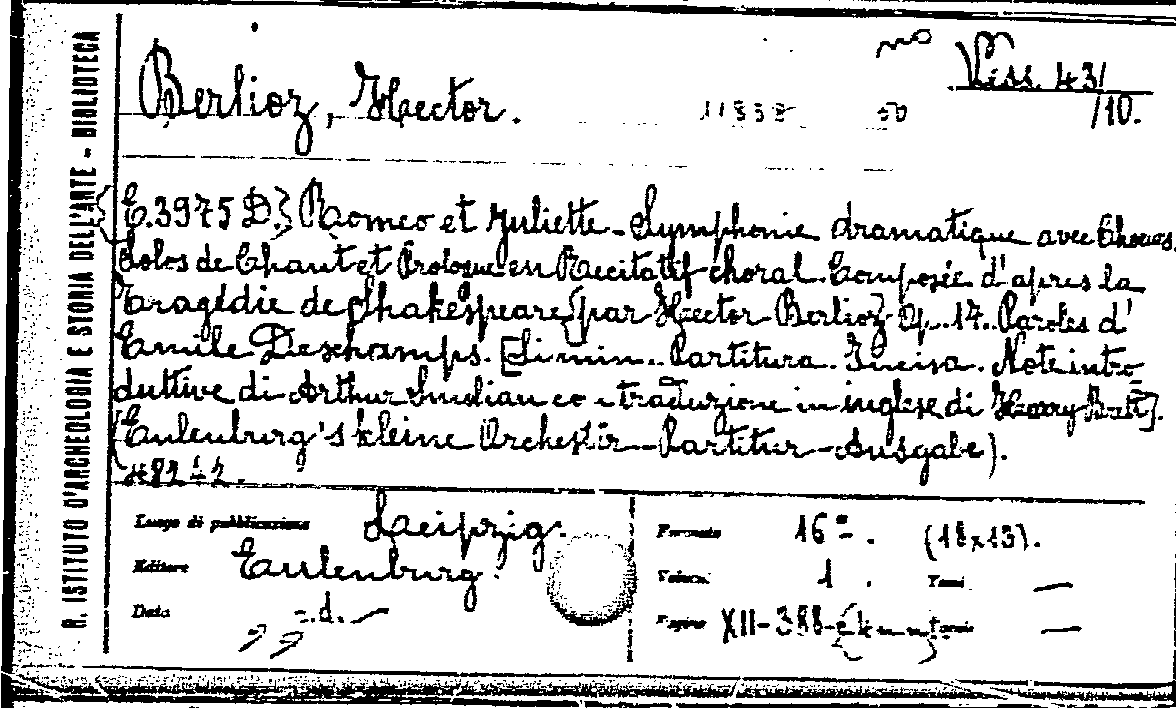 R. ISTITUTO D'ARCHEOLOGIA E STORIA DELL'ARTE - BIBLIOTECA
Berlioz, Hector.
Viss. 431
/10.
E.3975 D.} Romeo et Juliette - Symphonie dramatique avec Choeurs,
Solos de Chant et Prologue en Recitatif choral. Composée d'apres la
Tragédie de Shakespeare par Hector Berlioz Op. 17. Paroles d'
Emile Deschamps. [Simin. Partitura. Incisa. Note intro
duttive di Arthur Smolian traduzione in inglese di].
(Eulenburg's kleine Orchestir - Partitur - Ausgabe).
Luogo di pubblicazione Laeipzig.
Editore Eulenburg.
Data s.d.
Formato 16°. (18x13).
Volumi 1. Tomi —
Pagine XII-388 Tavole —